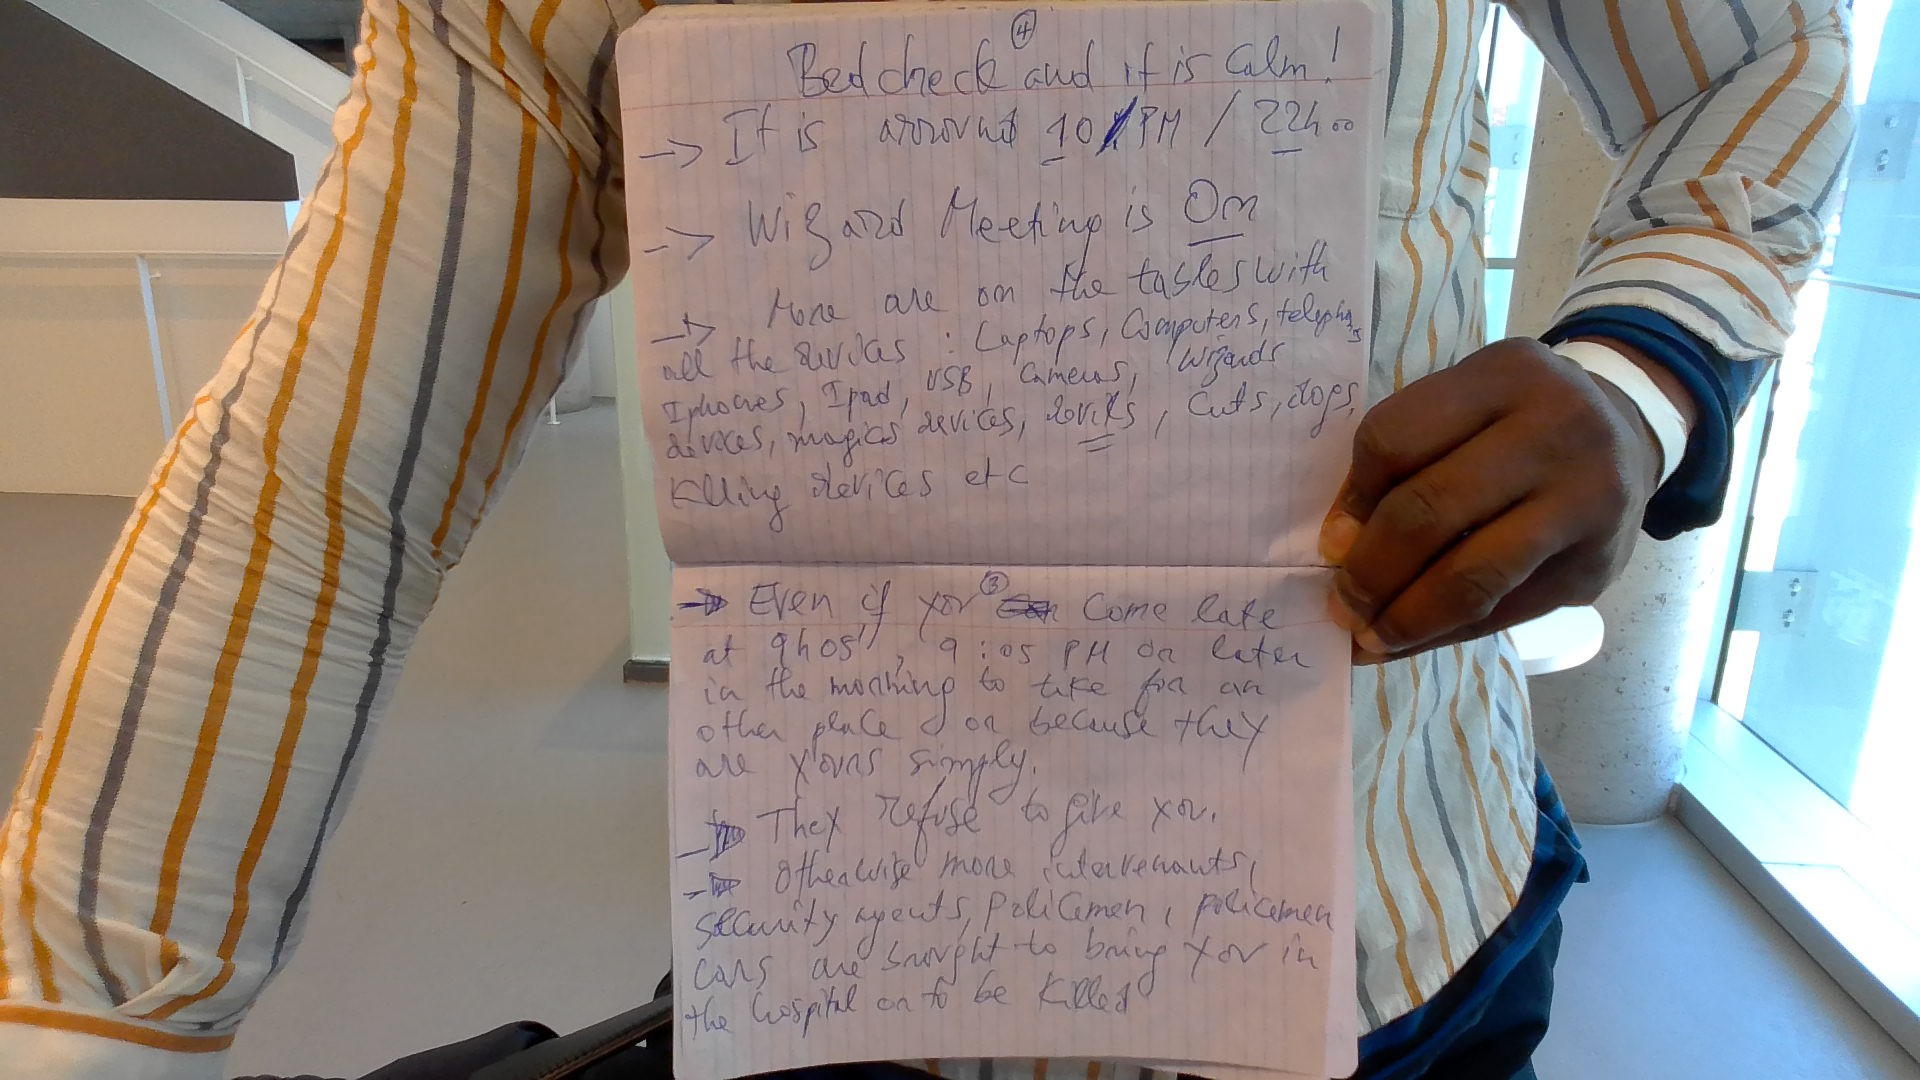 ④
Bed check and it is Calm!
→ It is arround 10 PM / 22h00
→ Wizard Meeting is On
→ More are on the tables with
all the devices : Laptops, Computers, telephones
Iphones, Ipad, USB, Cameras, wizards
devices, magics devices, devils, Cats, dogs,
Killing devices etc
③
→ Even if you Come late
at 9h05', 9:05 PM or later
in the morning to take for an
other place or because they
are yours simply.
→ They refuse to give you.
→ Otherwise more intervenants,
security agents, policemen, policemen
cars are brought to bring you in
the hospital or to be Killed